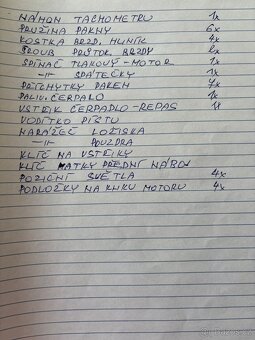 NÁHON TACHOMETRU 1x
PRUŽINA PAKNY 6x
KOSTKA BRZD. HLINÍK 4x
ŠROUB PRŮTOK BRZDY 2x
SPÍNAČ TLAKOVÝ - MOTOR 1x
-11- ZPÁTEČKY 1x
PŘÍCHYTKY PAKEN 7x
PALIV. ČERPADLO 1x
VSTŘIK ČERPADLO - REPAS 1x
VODÍTKO PÍSTU
NARÁŽEČ LOŽISKA
-11- POUZDRA
KLÍČ NA VSTŘIKY
KLÍČ MATKY PŘEDNÍ NÁBOJ
POZIČNÍ SVĚTLA 4x
PODLOŽKY NA KLIKU MOTORU 4x